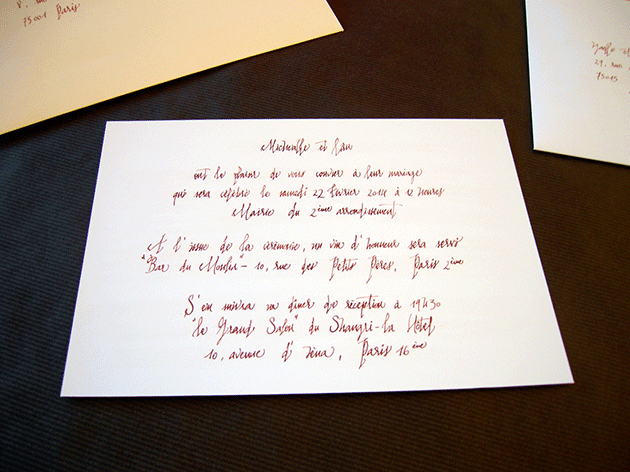 8, rue
75001 Paris
29, rue
75015
et
ont le plaisir de vous convier à leur mariage
qui sera célébré le samedi 22 février 2014 à 12 heures
Mairie du 2ème arrondissement
A l'issue de la cérémonie, un vin d'honneur sera servi
"Bar du - 10, rue des Petits Pères, Paris 2ème
S'en suivra un dîner de réception à 19h30
"le Grand Salon" du Shangri-la Hôtel
10, avenue d'Iéna, Paris 16ème